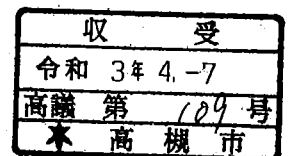 収受
令和 3年 4.-7
高議 第 109 号
★ 高槻市